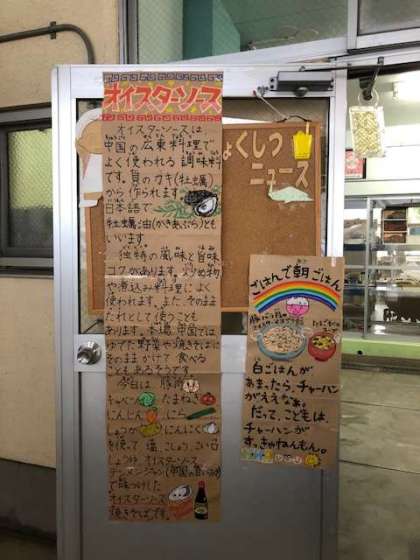 オイスターソース
オイスターソースは
中国の広東料理で
よく使われる調味料
です。貝のカキ(牡蠣)
から作られます。
日本語で
牡蠣油(かきあぶら)とも
いいます。
独特の風味と旨味
コクがあります。炒め物
や煮込み料理によく
使われます。また、そのまま
たれとして使うことも
あります。本場、中国では
ゆでた野菜や焼きそばに
そのままかけて食べる
こともあるそうです。
今日は、豚肉
キャベツ たまねぎ
にんじん にら
しょうが にんにく
を使って塩、こしょう、こい口
しょうゆ、オイスターソース
で味つけした
オイスターソース
焼きそばです。
ょくしつ
ニュース
ごはんで朝ごはん
白ごはんが
あまったら、チャーハン
がええなぁ。
だって、こどもは、
チャーハンが
すっきゃねんもん。